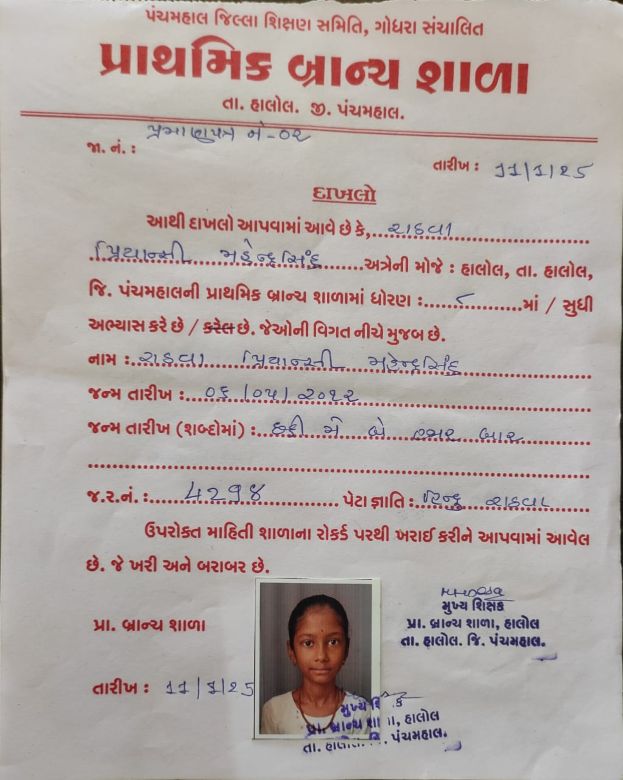 પંચમહાલ જિલ્લા શિક્ષણ સમિતિ, ગોધરા સંચાલિત
પ્રાથમિક બ્રાન્ચ શાળા
તા. હાલોલ. જી. પંચમહાલ.
જા. નં. : પ્રમાણપત્ર નં-૦૨
તારીખ : 11/1/25
દાખલો
આથી દાખલો આપવામાં આવે છે કે, રાઠવા
પ્રિયાન્સી મહેન્દ્રસિંહ અત્રેની મોજે : હાલોલ, તા. હાલોલ,
જિ. પંચમહાલની પ્રાથમિક બ્રાન્ચ શાળામાં ધોરણ : ૮ માં / સુધી
અભ્યાસ કરે છે / કરેલ છે. જેઓની વિગત નીચે મુજબ છે.
નામ : રાઠવા પ્રિયાન્સી મહેન્દ્રસિંહ
જન્મ તારીખ : ૦૬/૦૫/૨૦૧૨
જન્મ તારીખ (શબ્દોમાં) : છઠ્ઠી મે બે હજાર બાર
જ.ર.નં. : 4298 પેટા જ્ઞાતિ : હિન્દુ રાઠવા
ઉપરોક્ત માહિતી શાળાના રોકર્ડ પરથી ખરાઈ કરીને આપવામાં આવેલ
છે. જે ખરી અને બરાબર છે.
મુખ્ય શિક્ષક
પ્રા. બ્રાન્ચ શાળા, હાલોલ
તા. હાલોલ. જિ. પંચમહાલ.
પ્રા. બ્રાન્ચ શાળા
તારીખ : 11/1/25
મુખ્ય શિ ક
પ્રા. બ્રાન્ચ શાળા, હાલોલ
તા. હાલોલ. જિ. પંચમહાલ.